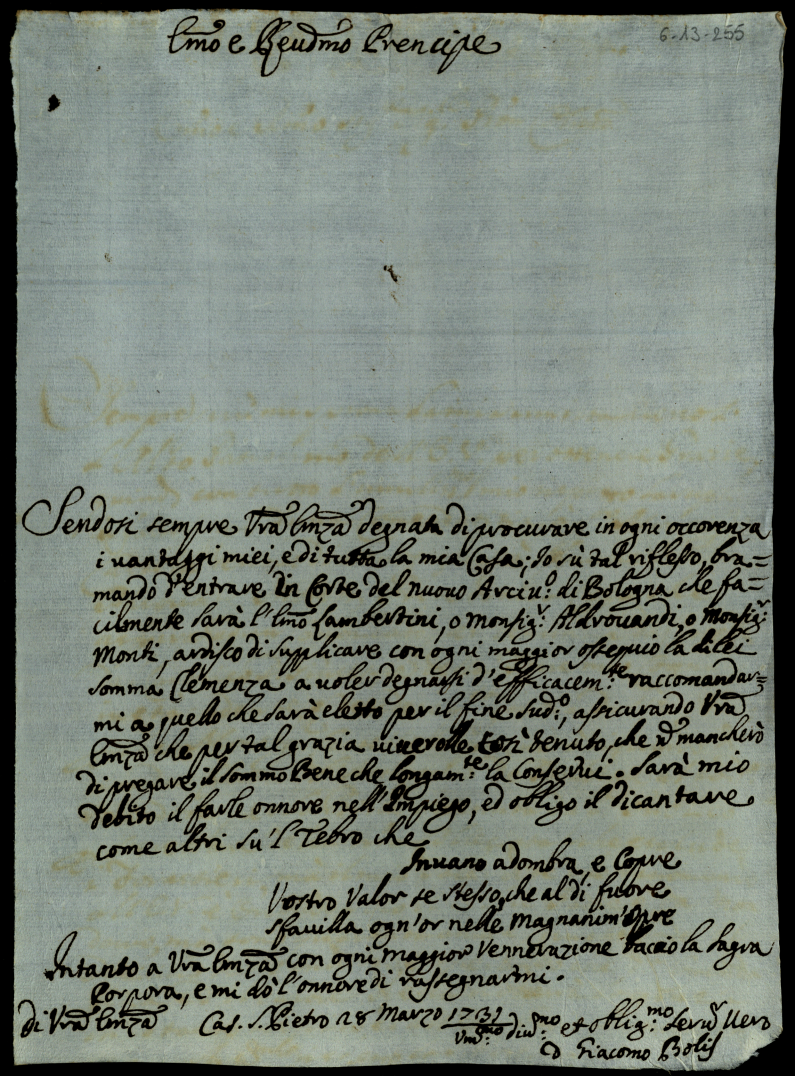 6-13-255
Emo e Reudmo Prencipe
Sendosi sempre Vra Emza degnata di procurare in ogni occorenza
i vantaggi miei, e di tutta la mia Casa; Io sù tal riflesso, bra=
mando d'entrare in Corte del nuovo Arciu.o di Bologna che fa=
cilmente sarà l'Emo Lambertini, o Monsig.r Aldrouandi, o Monsig.r
Monti, ardisco di supplicare con ogni maggior ossequio la di lei
somma Clemenza a voler degnarsi d'efficacem.te raccomandar=
mi a quello che sarà eletto per il fine sud.o, assicurando Vra
Emza che per tal grazia viverolle così tenuto, che n mancherò
di pregare il sommo Bene che longam.te la Conservi. Sarà mio
debito il farle onnore nell'Impiego, ed obligo il dicantare
come altri su'l Tebro che
Invano adombra, e Copre
Vostro Valor se stesso, che al di fuore
sfauilla ogn'or nelle magnanim'Opre
Intanto a Vra Emza con ogni maggior Vennerazione baccio la Sagra
Porpora, e mi dò l'onnore di rassegnarmi.
di Vra Emza Cas. S. Pietro 28 Marzo 1731
Vm.mo diu.mo et oblig.mo Seru.r Uero
Giacomo Bolis